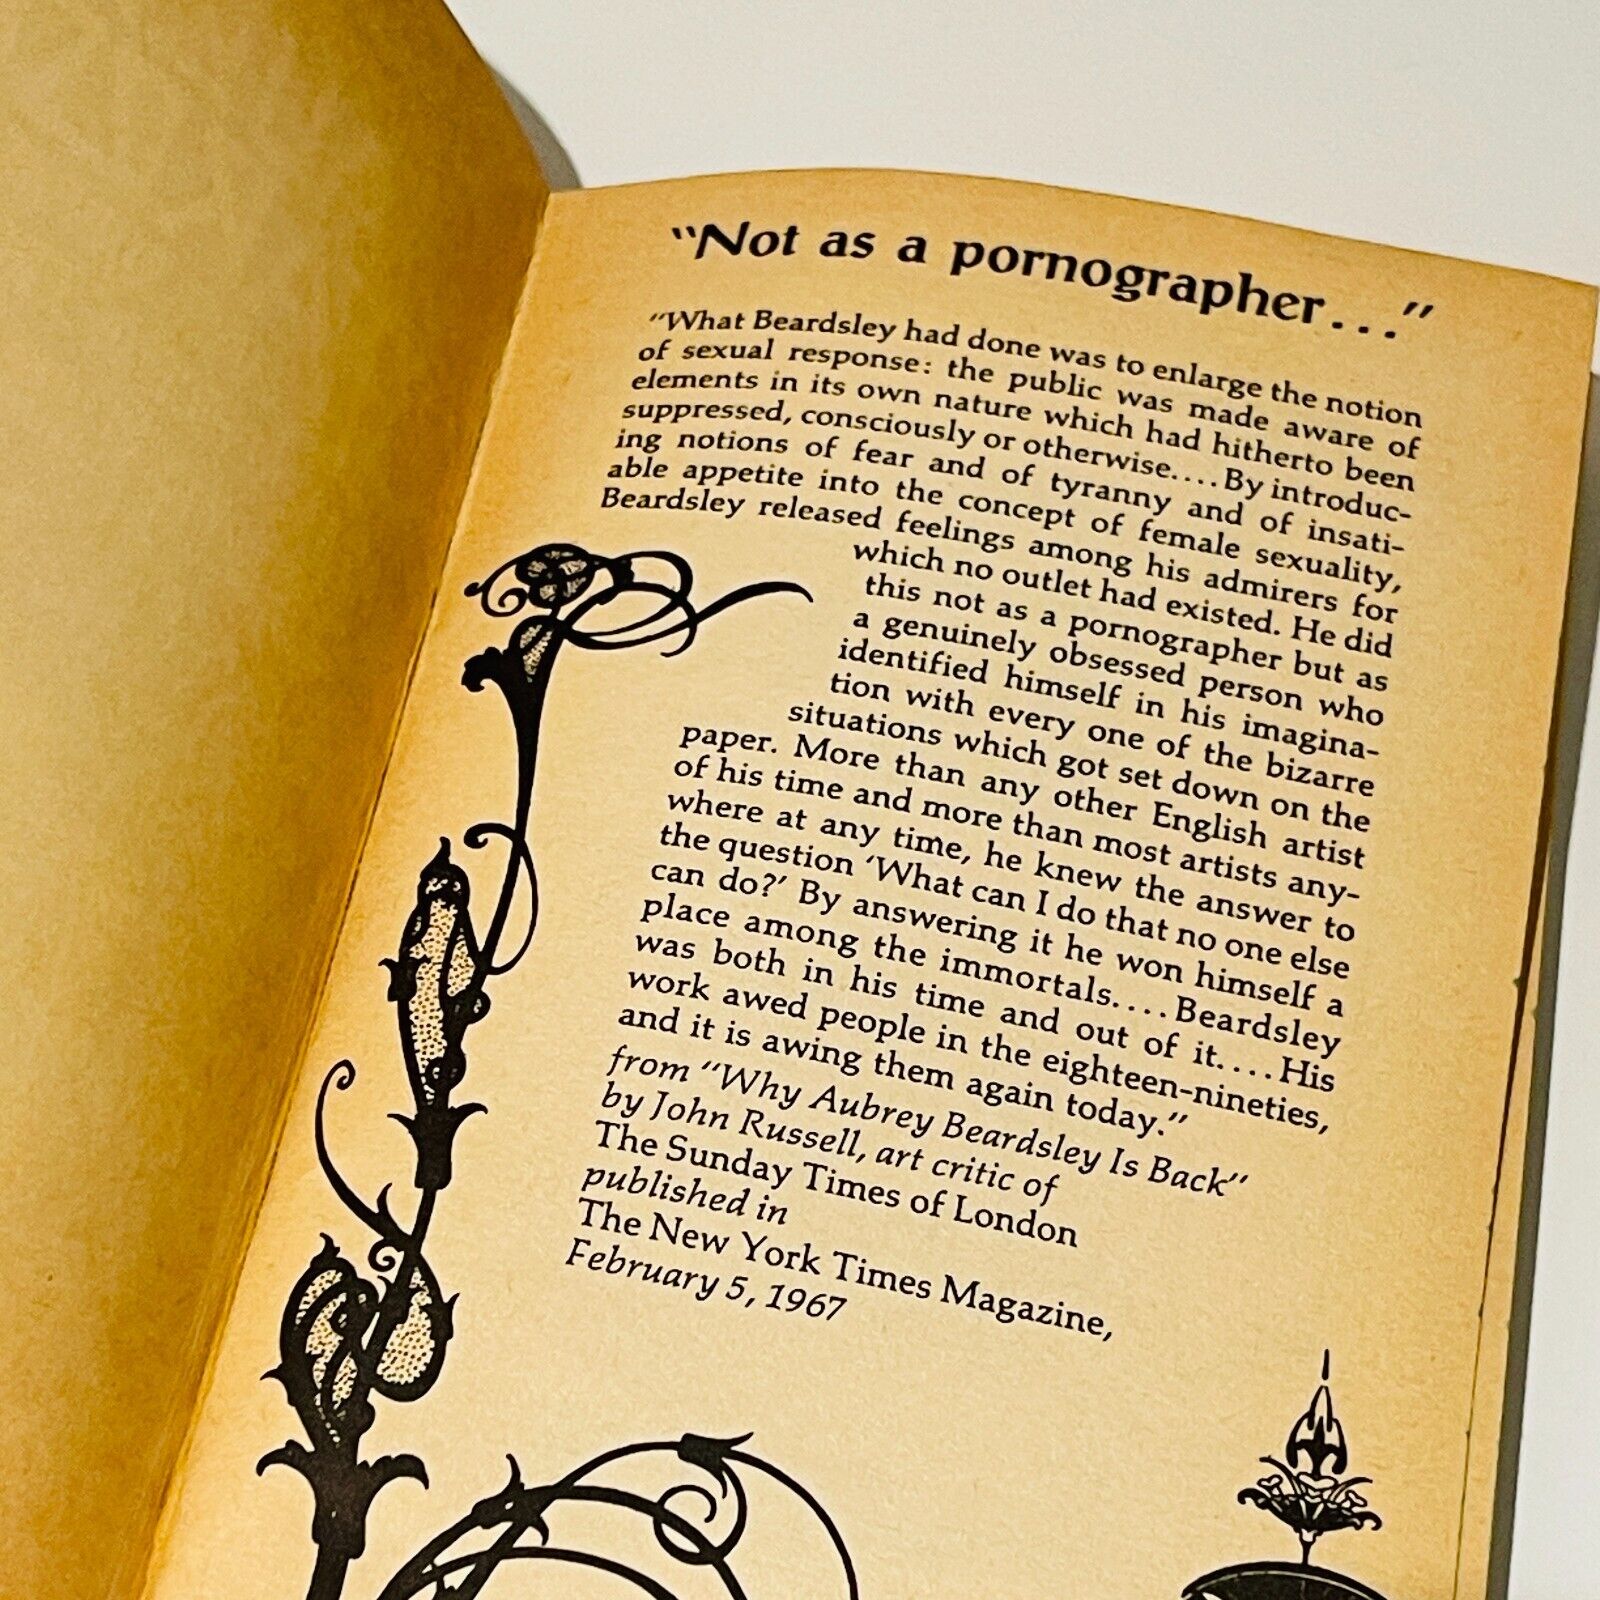 "Not as a pornographer..."
"What Beardsley had done was to enlarge the notion
of sexual response: the public was made aware of
elements in its own nature which had hitherto been
suppressed, consciously or otherwise.... By introduc-
ing notions of fear and of tyranny and of insati-
able appetite into the concept of female sexuality,
Beardsley released feelings among his admirers for
which no outlet had existed. He did
this not as a pornographer but as
a genuinely obsessed person who
identified himself in his imagina-
tion with every one of the bizarre
situations which got set down on the
paper. More than any other English artist
of his time and more than most artists any-
where at any time, he knew the answer to
the question 'What can I do that no one else
can do?' By answering it he won himself a
place among the immortals.... Beardsley
was both in his time and out of it.... His
work awed people in the eighteen-nineties,
and it is awing them again today."
from "Why Aubrey Beardsley Is Back"
by John Russell, art critic of
The Sunday Times of London
published in
The New York Times Magazine,
February 5, 1967